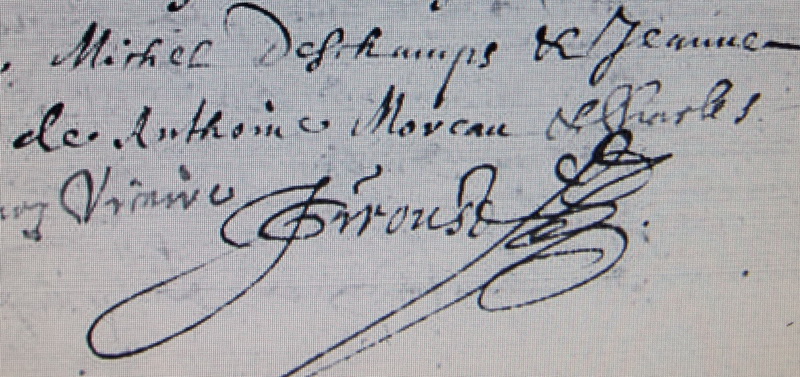 Michel Deschamps & Jeanne
de Anthoine Moreau & Charles
Proust